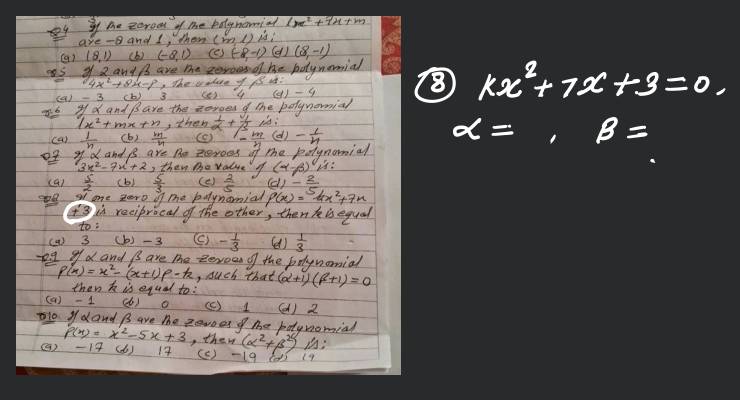 Q4 If the zeroes of the polynomial lx² + 7x + m
are -8 and 1, then (m, l) is:
(a) (8,1) (b) (-8,1) (c) (-8,-1) (d) (8,-1)
Q5 If 2 and β are the zeroes of the polynomial
4x² + 8x - p, the value of β is:
(a) - 3 (b) 3 (c) 4 (d) - 4
Q6 If α and β are the zeroes of the polynomial
lx² + mx + n, then 1/α + 1/β is:
(a) 1/n (b) m/n (c) - m/n (d) - 1/n
Q7 If α and β are the zeroes of the polynomial
3x² - 7x + 2, then the value of (α-β) is:
(a) 5/2 (b) 5/3 (c) 2/5 (d) - 2/5
Q8 If one zero of the polynomial P(x) = kx² + 7x
+ 3 is reciprocal of the other, then k is equal
to:
(a) 3 (b) - 3 (c) - 1/3 (d) 1/3
Q9 If α and β are the zeroes of the polynomial
P(x) = x² - (x+1)p - k, such that (α+1)(β+1) = 0
then k is equal to:
(a) - 1 (b) 0 (c) 1 (d) 2
Q10 If α and β are the zeroes of the polynomial
P(x) = x² - 5x + 3, then (α² + β²) is:
(a) - 17 (b) 17 (c) - 19 (d) 19
⑧ kx² + 7x + 3 = 0,
α = , β =